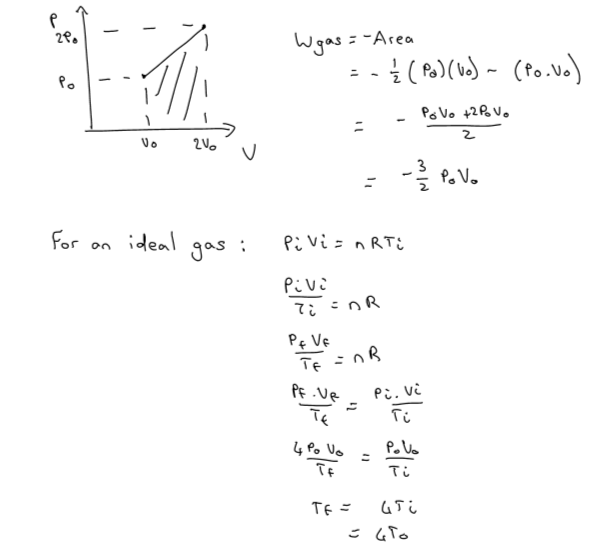 P
2P₀
P₀
V₀ 2V₀
V
Wgas = -Area
= - 1/2 (P₀)(V₀) - (P₀.V₀)
= - (P₀V₀ + 2P₀V₀)/2
= -3/2 P₀V₀
For an ideal gas : PiVi = nRTi
PiVi/Ti = nR
PfVf/Tf = nR
Pf.Vf/Tf = Pi.Vi/Ti
4P₀V₀/Tf = P₀V₀/Ti
Tf = 4Ti
= 4T₀